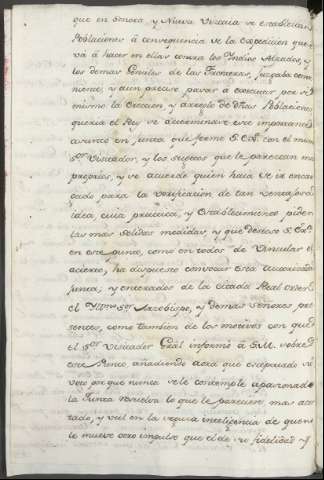 que en Sonora, y Nueva Vizcaia se establezcan
Poblaciones à consequencia de la Expedicion que
và à hacer en ellas contra los Indios Alzados, y
los demas Gentiles de las Fronteras, juzgaba conve
niente, y aun preciso pasar à executar por si
mismo la Ereccion, y arreglo de dhas Poblaciones
queria el Rey se determinase este importante
asunto en Junta que forme S. Exâ. con el mismo
Sor. Visitador, y los sugetos que le parezcan mas
proprios, y se acuerde quien haia de ir encar
gado para la verificacion de tan ventajosa
idea, cuia practica, y establecimiento piden
las mas solidas medidas, y que deseoso S. Exâ.
en este punto, como en todos de vincular el
acierto, ha dispuesto convocar esta
Junta; y enterados de la citada Real orden
el Yllmo. Sor. Arzobispo, y demas Señores pre
sentes, como tambien de los motivos con que
el Sor. Visitador Gral. informó à S.M. sobre
este Punto, añadiendo aora que
voto porque nunca se le contemple apasionado
la Junta resuelva lo que le parezca mas acer
tado, y util en la segura inteligencia de que no
le mueve otro impulso que el de su fidelidad y